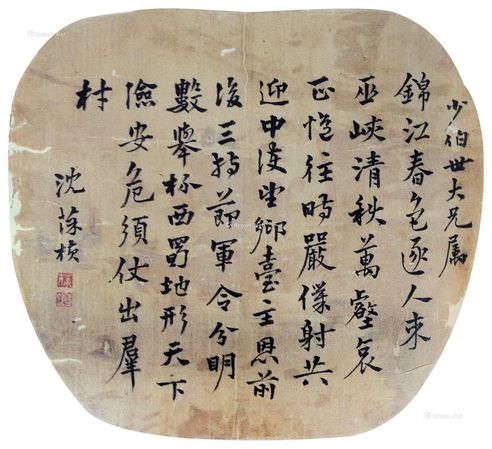 少伯世大兄属
錦江春色逐人来
巫峽清秋萬壑哀
正憶往時嚴僕射共
迎中使望鄉臺主恩前
後三持節軍令分明
數舉杯西蜀地形天下
險安危須仗出羣
材
沈葆楨